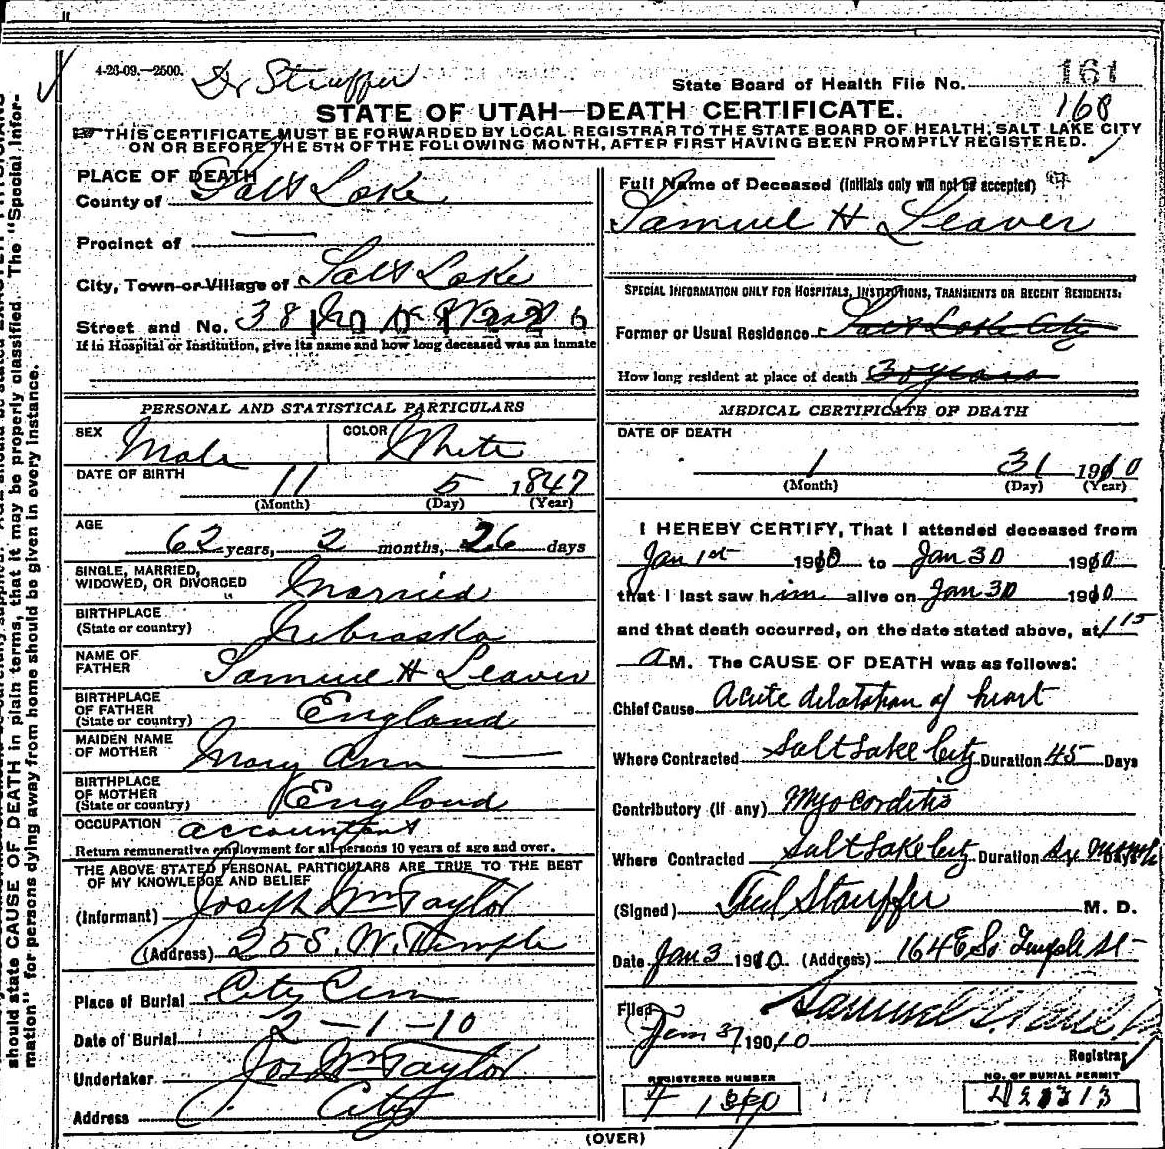 4-26-09.—2500.
Dr Stauffer
State Board of Health File No. 161
168
STATE OF UTAH—DEATH CERTIFICATE.
THIS CERTIFICATE MUST BE FORWARDED BY LOCAL REGISTRAR TO THE STATE BOARD OF HEALTH, SALT LAKE CITY
ON OR BEFORE THE 5TH OF THE FOLLOWING MONTH, AFTER FIRST HAVING BEEN PROMPTLY REGISTERED.
PLACE OF DEATH
County of Salt Lake
Precinct of
City, Town or Village of Salt Lake
Street and No. 38
If in Hospital or Institution, give its name and how long deceased was an inmate
Full Name of Deceased (Initials only will not be accepted)
Samuel H Leaver
SPECIAL INFORMATION ONLY FOR HOSPITALS, INSTITUTIONS, TRANSIENTS OR RECENT RESIDENTS:
Former or Usual Residence Salt Lake City
How long resident at place of death 30 years
PERSONAL AND STATISTICAL PARTICULARS
SEX Male COLOR White
DATE OF BIRTH 11 5 1847
(Month) (Day) (Year)
AGE
62 years, 2 months, 26 days
SINGLE, MARRIED,
WIDOWED, OR DIVORCED Married
BIRTHPLACE
(State or country) Nebraska
NAME OF
FATHER Samuel H Leaver
BIRTHPLACE
OF FATHER
(State or country) England
MAIDEN NAME
OF MOTHER Mary Ann
BIRTHPLACE
OF MOTHER
(State or country) England
OCCUPATION accountant
Return remunerative employment for all persons 10 years of age and over.
THE ABOVE STATED PERSONAL PARTICULARS ARE TRUE TO THE BEST
OF MY KNOWLEDGE AND BELIEF
(Informant) Joseph Wm Taylor
(Address) 25 S. W. Temple
Place of Burial City Cem
Date of Burial 2-1-10
Undertaker Jos Wm Taylor
Address City
MEDICAL CERTIFICATE OF DEATH
DATE OF DEATH
1 31 1910
(Month) (Day) (Year)
I HEREBY CERTIFY, That I attended deceased from
Jan 1st 1910 to Jan 30 1910
that I last saw him alive on Jan 30 1910
and that death occurred, on the date stated above, at 1 15
a M. The CAUSE OF DEATH was as follows:
Chief Cause Acute dilatation of heart
Where Contracted Salt Lake City Duration 45 Days
Contributory (if any) Myocarditis
Where Contracted Salt Lake City Duration Six Months
(Signed) Stauffer M. D.
Date Jan 3 1910 (Address) 164 E So Temple St
Filed
Jan 31 1910 Samuel G. Paul
Registrar
REGISTERED NUMBER
NO. OF BURIAL PERMIT
(OVER)
should state CAUSE OF DEATH in plain terms, that it may be properly classified. The "Special Infor-
mation" for persons dying away from home should be given in every instance.